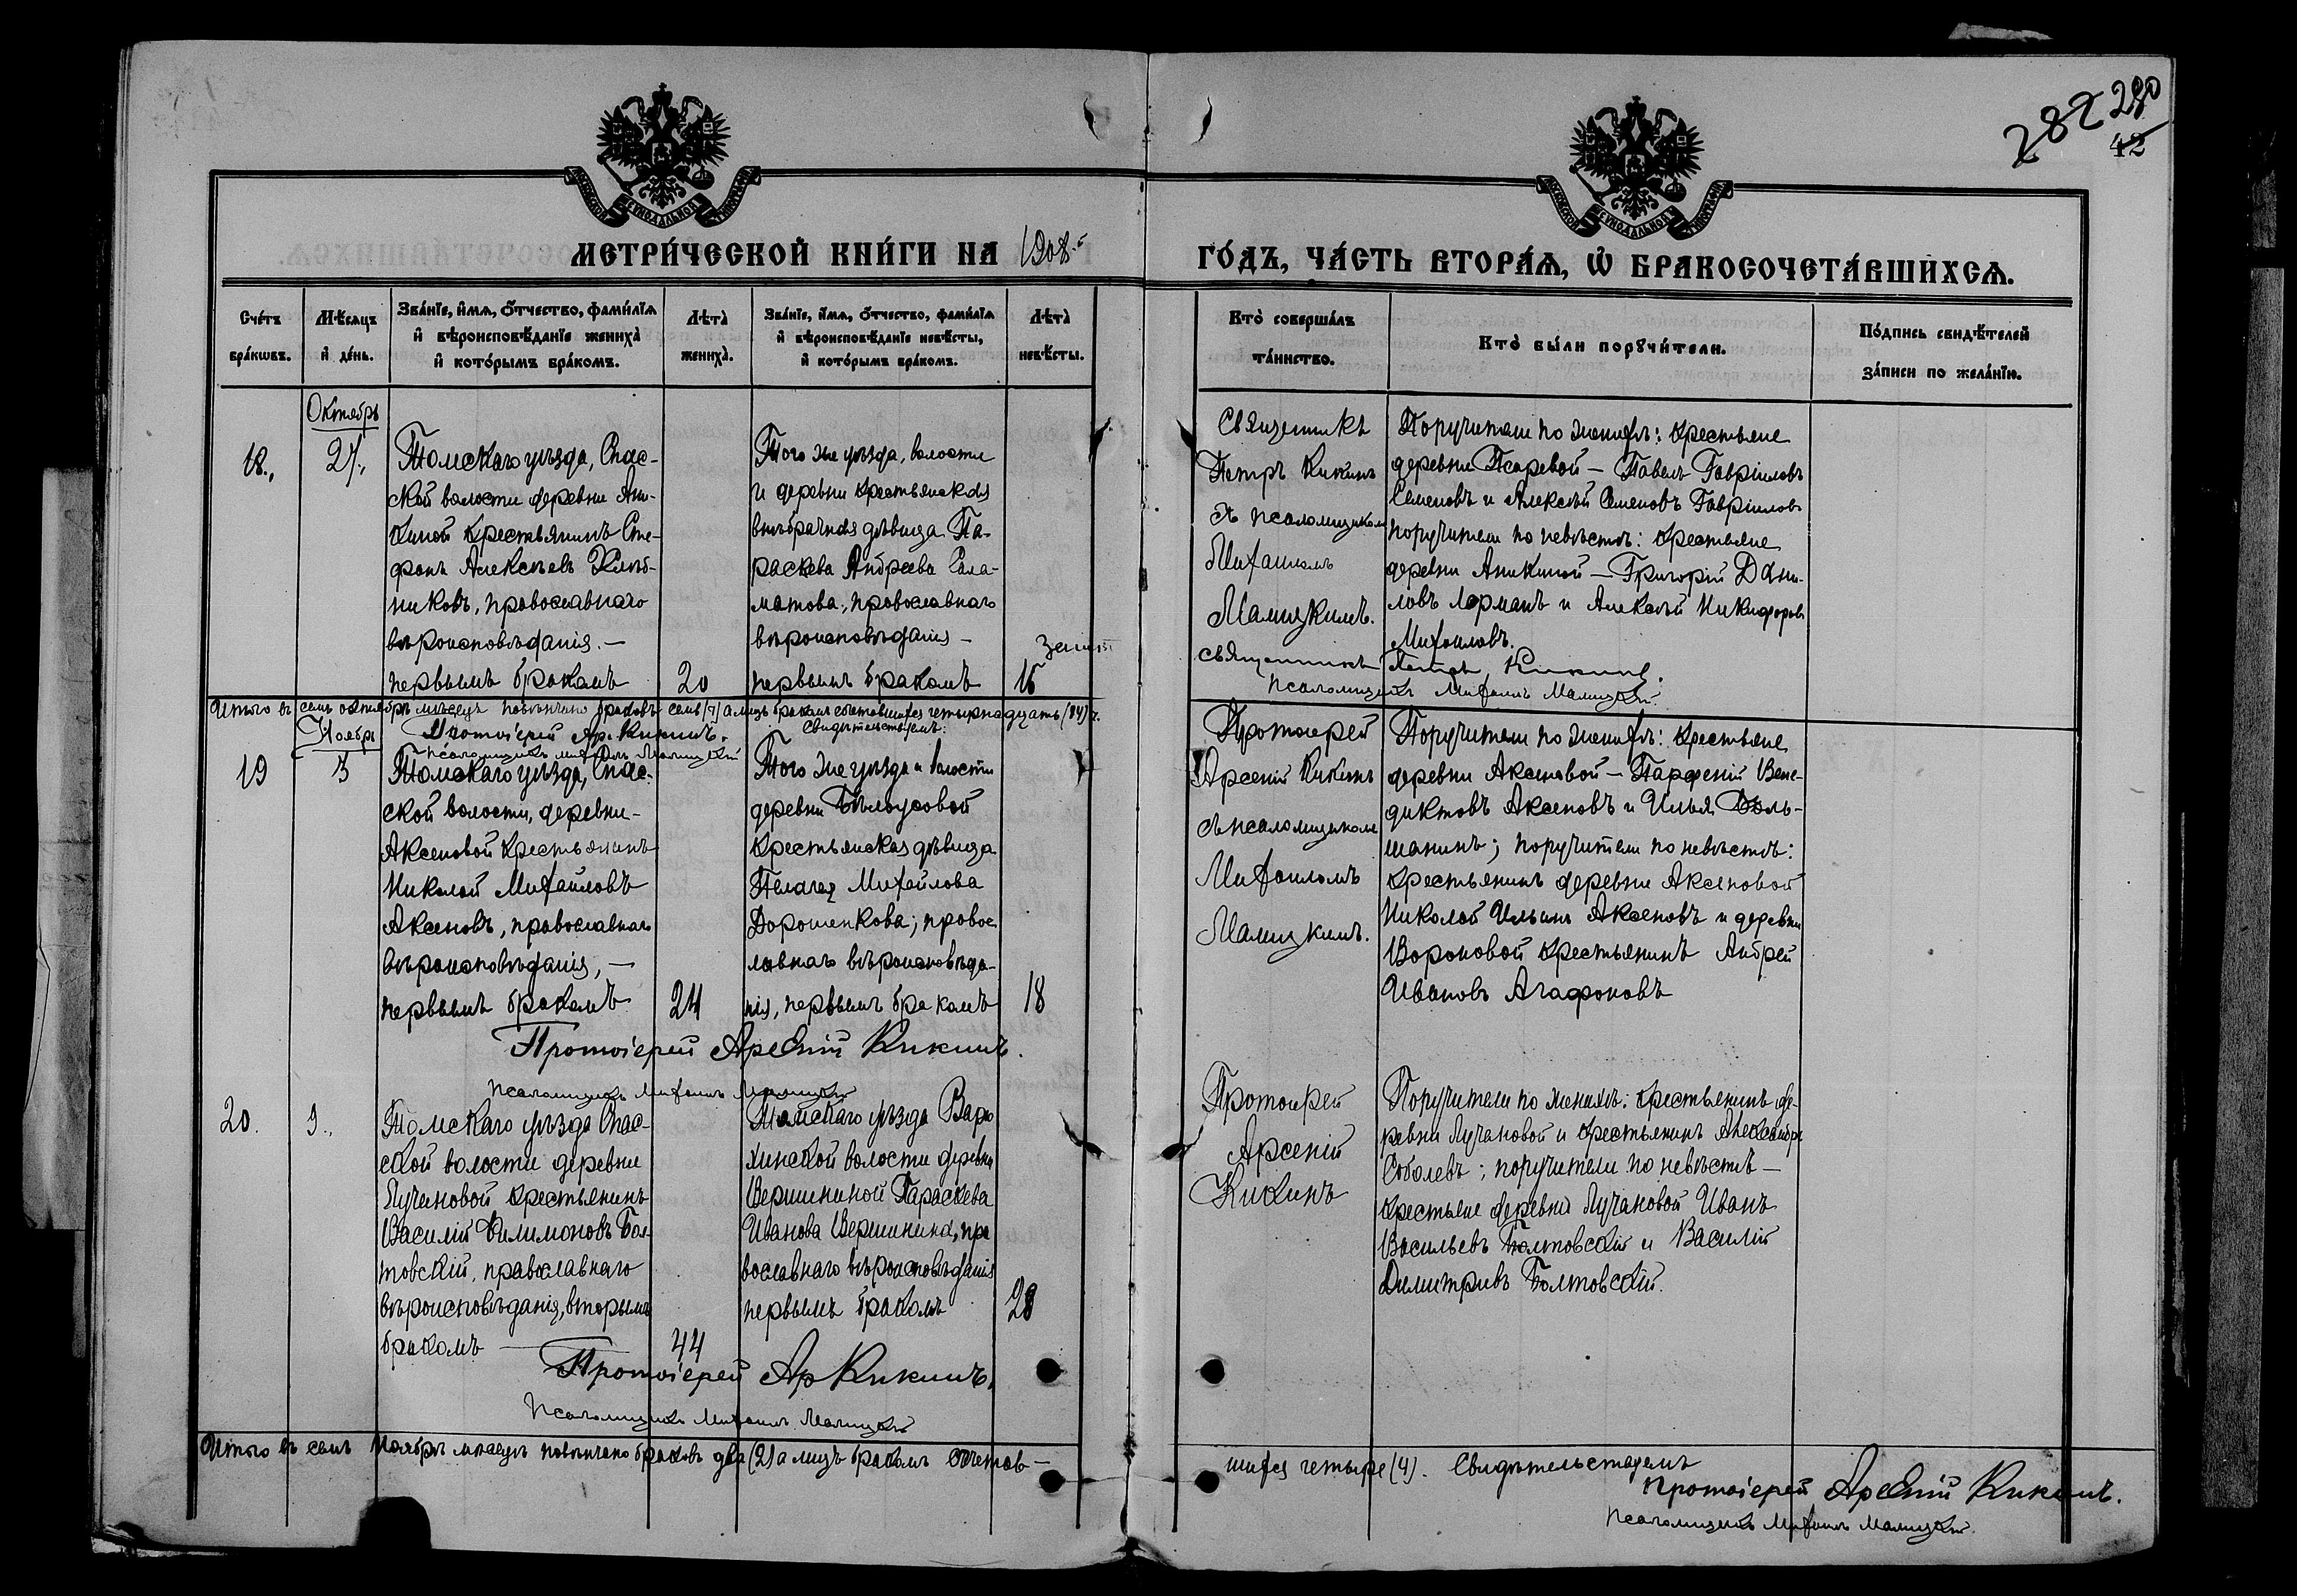 282 280
42
МЕТРИ́ЧЕСКОЙ КНИ́ГИ НА 1908.
ГО́ДЪ, ЧА́СТЬ ВТОРА́Ѧ, Ѡ҆ БРАКОСОЧЕТА́ВШИХСѦ.
Сче́тъ бра́кѡвъ.
Мѣ́сѧцъ и҆ де́нь.
Зва́нїе, и҆́мѧ, о҆́тчество, фами́лїѧ и҆ вѣроисповѣ́данїе жениха̀ и҆ кото́рымъ бра́комъ.
Лѣ́та̀ жениха̀.
Зва́нїе, и҆́мѧ, о҆́тчество, фами́лїѧ и҆ вѣроисповѣ́данїе невѣ́сты, и҆ кото́рымъ бра́комъ.
Лѣ́та̀ невѣ́сты.
Кто̀ соверша́лъ та́инство.
Кто̀ бы́ли порꙋчи́тели.
По́дпись свидѣ́телей за́писи по жела́нїю.
Октябрь
18.,
27.,
Томскаго уѣзда, Спас-
ской волости деревни Ани-
киной крестьянинъ Сте-
фанъ Алексѣевъ Хлѣб-
никовъ, православнаго
вѣроисповѣданія. —
первымъ бракомъ
20
Того же уѣзда, волости
и деревни крестьянская
внѣбрачная дѣвица Па-
раскева Андреева Сала-
матова, православнаго
вѣроисповѣданія —
первымъ бракомъ
16
Священникъ
Петръ Кикинъ
съ псаломщикомъ
Михаиломъ
Малицкимъ.
Поручители по женихѣ: крестьяне
деревни Псаревой — Павелъ Гавріиловъ
Семеновъ и Алексѣй Семеновъ Гавріиловъ
поручители по невѣстѣ: крестьяне
деревни Аникиной — Григорій Дани-
ловъ Лорманъ и Алексѣй Никифоровъ
Михаиловъ.
священникъ Петръ Кикинъ.
Псаломщикъ Михаилъ Малицкій.
Итого въ семъ октябрѣ мѣсяцѣ повѣнчано браковъ семь (7) а лицъ бракомъ сочетавшихся четырнадцать (14).
Свидѣтельствуемъ:
Протоіерей Ар. Кикинъ.
Псаломщикъ Михаилъ Малицкій
Ноябрь
19
3
Томскаго уѣзда, Спас-
ской волости, деревни-
Аксеновой крестьянинъ
Николай Михайловъ
Аксеновъ, православнаго
вѣроисповѣданія, —
первымъ бракомъ
24
Того же уѣзда и волости
деревни Бѣлоусовой
крестьянская дѣвица
Пелагея Михайлова
Дорошенкова; правос
лавнаго вѣроисповѣда-
нія, первымъ бракомъ
18
Протоиерей
Арсеній Кикинъ
съ псаломщикомъ
Михаиломъ
Малицкимъ.
Поручители по женихѣ: крестьяне
деревни Аксеновой — Парфеній Вене-
диктовъ Аксеновъ и Илья Боль-
шанинъ; поручители по невѣстѣ:
крестьянинъ деревни Аксеновой
Николай Ильинъ Аксеновъ и деревни
Вороновой крестьянинъ Андрей
Ивановъ Агафоновъ
Протоіерей Арсеній Кикинъ.
Псаломщикъ Михаилъ Малицкій
20.
9.,
Томскаго уѣзда Спас-
ской волости деревни
Лучановой крестьянинъ
Василій Филимоновъ Бол-
товскій, православнаго
вѣроисповѣданія, вторымъ
бракомъ —
44
Томскаго уѣзда Варю
хинской волости деревни
Вершининой Параскева
Иванова Вершинина, пра
вославнаго вѣроисповѣданія
первымъ бракомъ
28
Протоиерей
Арсеній
Кикинъ
Поручители по женихѣ: крестьянинъ де-
ревни Лучановой и крестьянинъ Александръ
Соболевъ; поручители по невѣстѣ —
крестьяне деревни Лучановой Иванъ
Васильевъ Болтовскій и Василій
Димитріевъ Болтовскій.
Протоіерей Ар Кикинъ.
Псаломщикъ Михаилъ Малицкій
Итого въ семъ Ноябрѣ мѣсяцѣ повѣнчано браковъ два (2) а лицъ бракомъ сочетав-
шихся четыре (4). Свидѣтельствуемъ
Протоіерей Арсеній Кикинъ.
Псаломщикъ Михаилъ Малицкій.